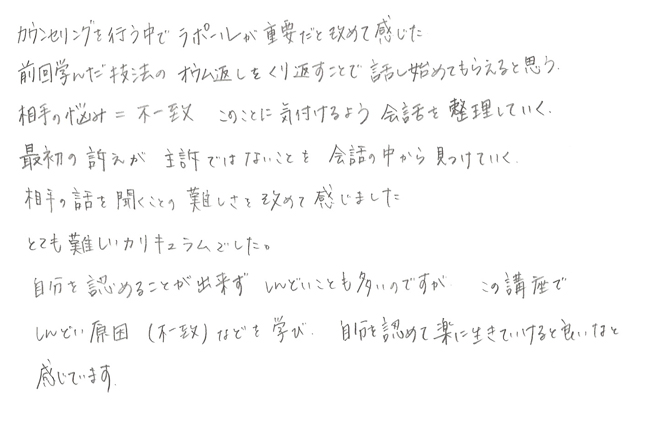 カウンセリングを行う中でラポールが重要だと改めて感じた
前回学んだ技法のオウム返しをくり返すことで話し始めてもらえると思う.
相手の悩み = 不一致 このことに気付けるよう会話を整理していく.
最初の訴えが主訴ではないことを会話の中から見つけていく.
相手の話を聞くことの難しさを改めて感じました
とても難しいカリキュラムでした。
自分を認めることが出来ずしんどいことも多いのですが この講座で
しんどい原因(不一致)などを学び. 自分を認めて楽に生きていけると良いなと
感じています.